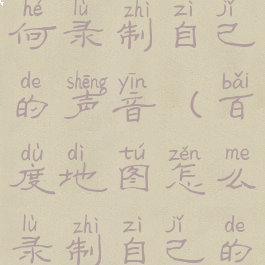 hé lù zhì zì jǐ
何录制自己
de shēng yīn bǎi
的声音（百
dù dì tú zěn me
度地图怎么
lù zhì zì jǐ de
录制自己的